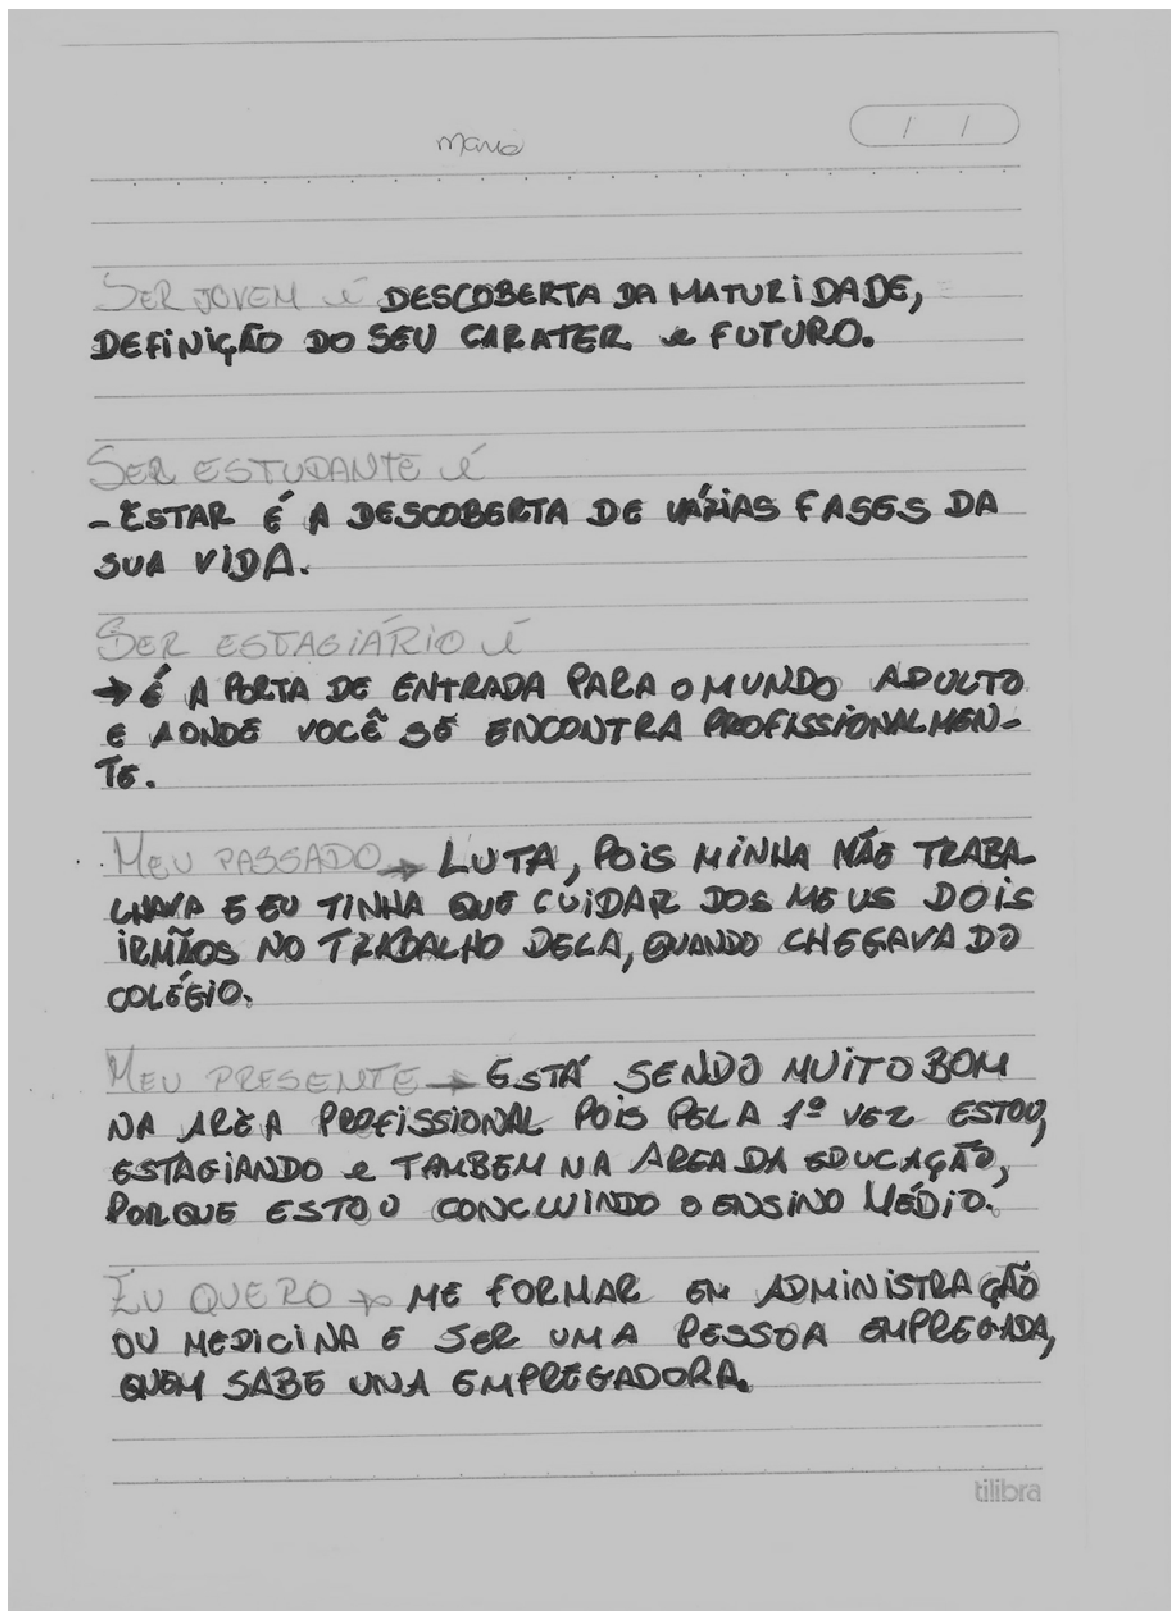 / /
SER JOVEM é DESCOBERTA DA MATURIDADE,
DEFINIÇÃO DO SEU CARATER e FUTURO.
SER ESTUDANTE é
- ESTAR É A DESCOBERTA DE VÁRIAS FASES DA
SUA VIDA.
SER ESTAGIÁRIO é
→ É A PORTA DE ENTRADA PARA O MUNDO ADULTO
E AONDE VOCÊ SE ENCONTRA PROFISSIONALMEN-
TE.
MEU PASSADO → LUTA, POIS MINHA MÃE TRABA-
LHAVA E EU TINHA QUE CUIDAR DOS MEUS DOIS
IRMÃOS NO TRABALHO DELA, QUANDO CHEGAVA DO
COLÉGIO.
MEU PRESENTE → ESTÁ SENDO MUITO BOM
NA AREA PROFISSIONAL POIS PELA 1º VEZ ESTOU,
ESTAGIANDO e TAMBEM NA AREA DA EDUCAÇÃO,
PORQUE ESTOU CONCLUINDO O ENSINO MÉDIO.
EU QUERO → ME FORMAR EM ADMINISTRAÇÃO
OU MEDICINA E SER UMA PESSOA EMPREGADA,
QUEM SABE UMA EMPREGADORA.
tilibra